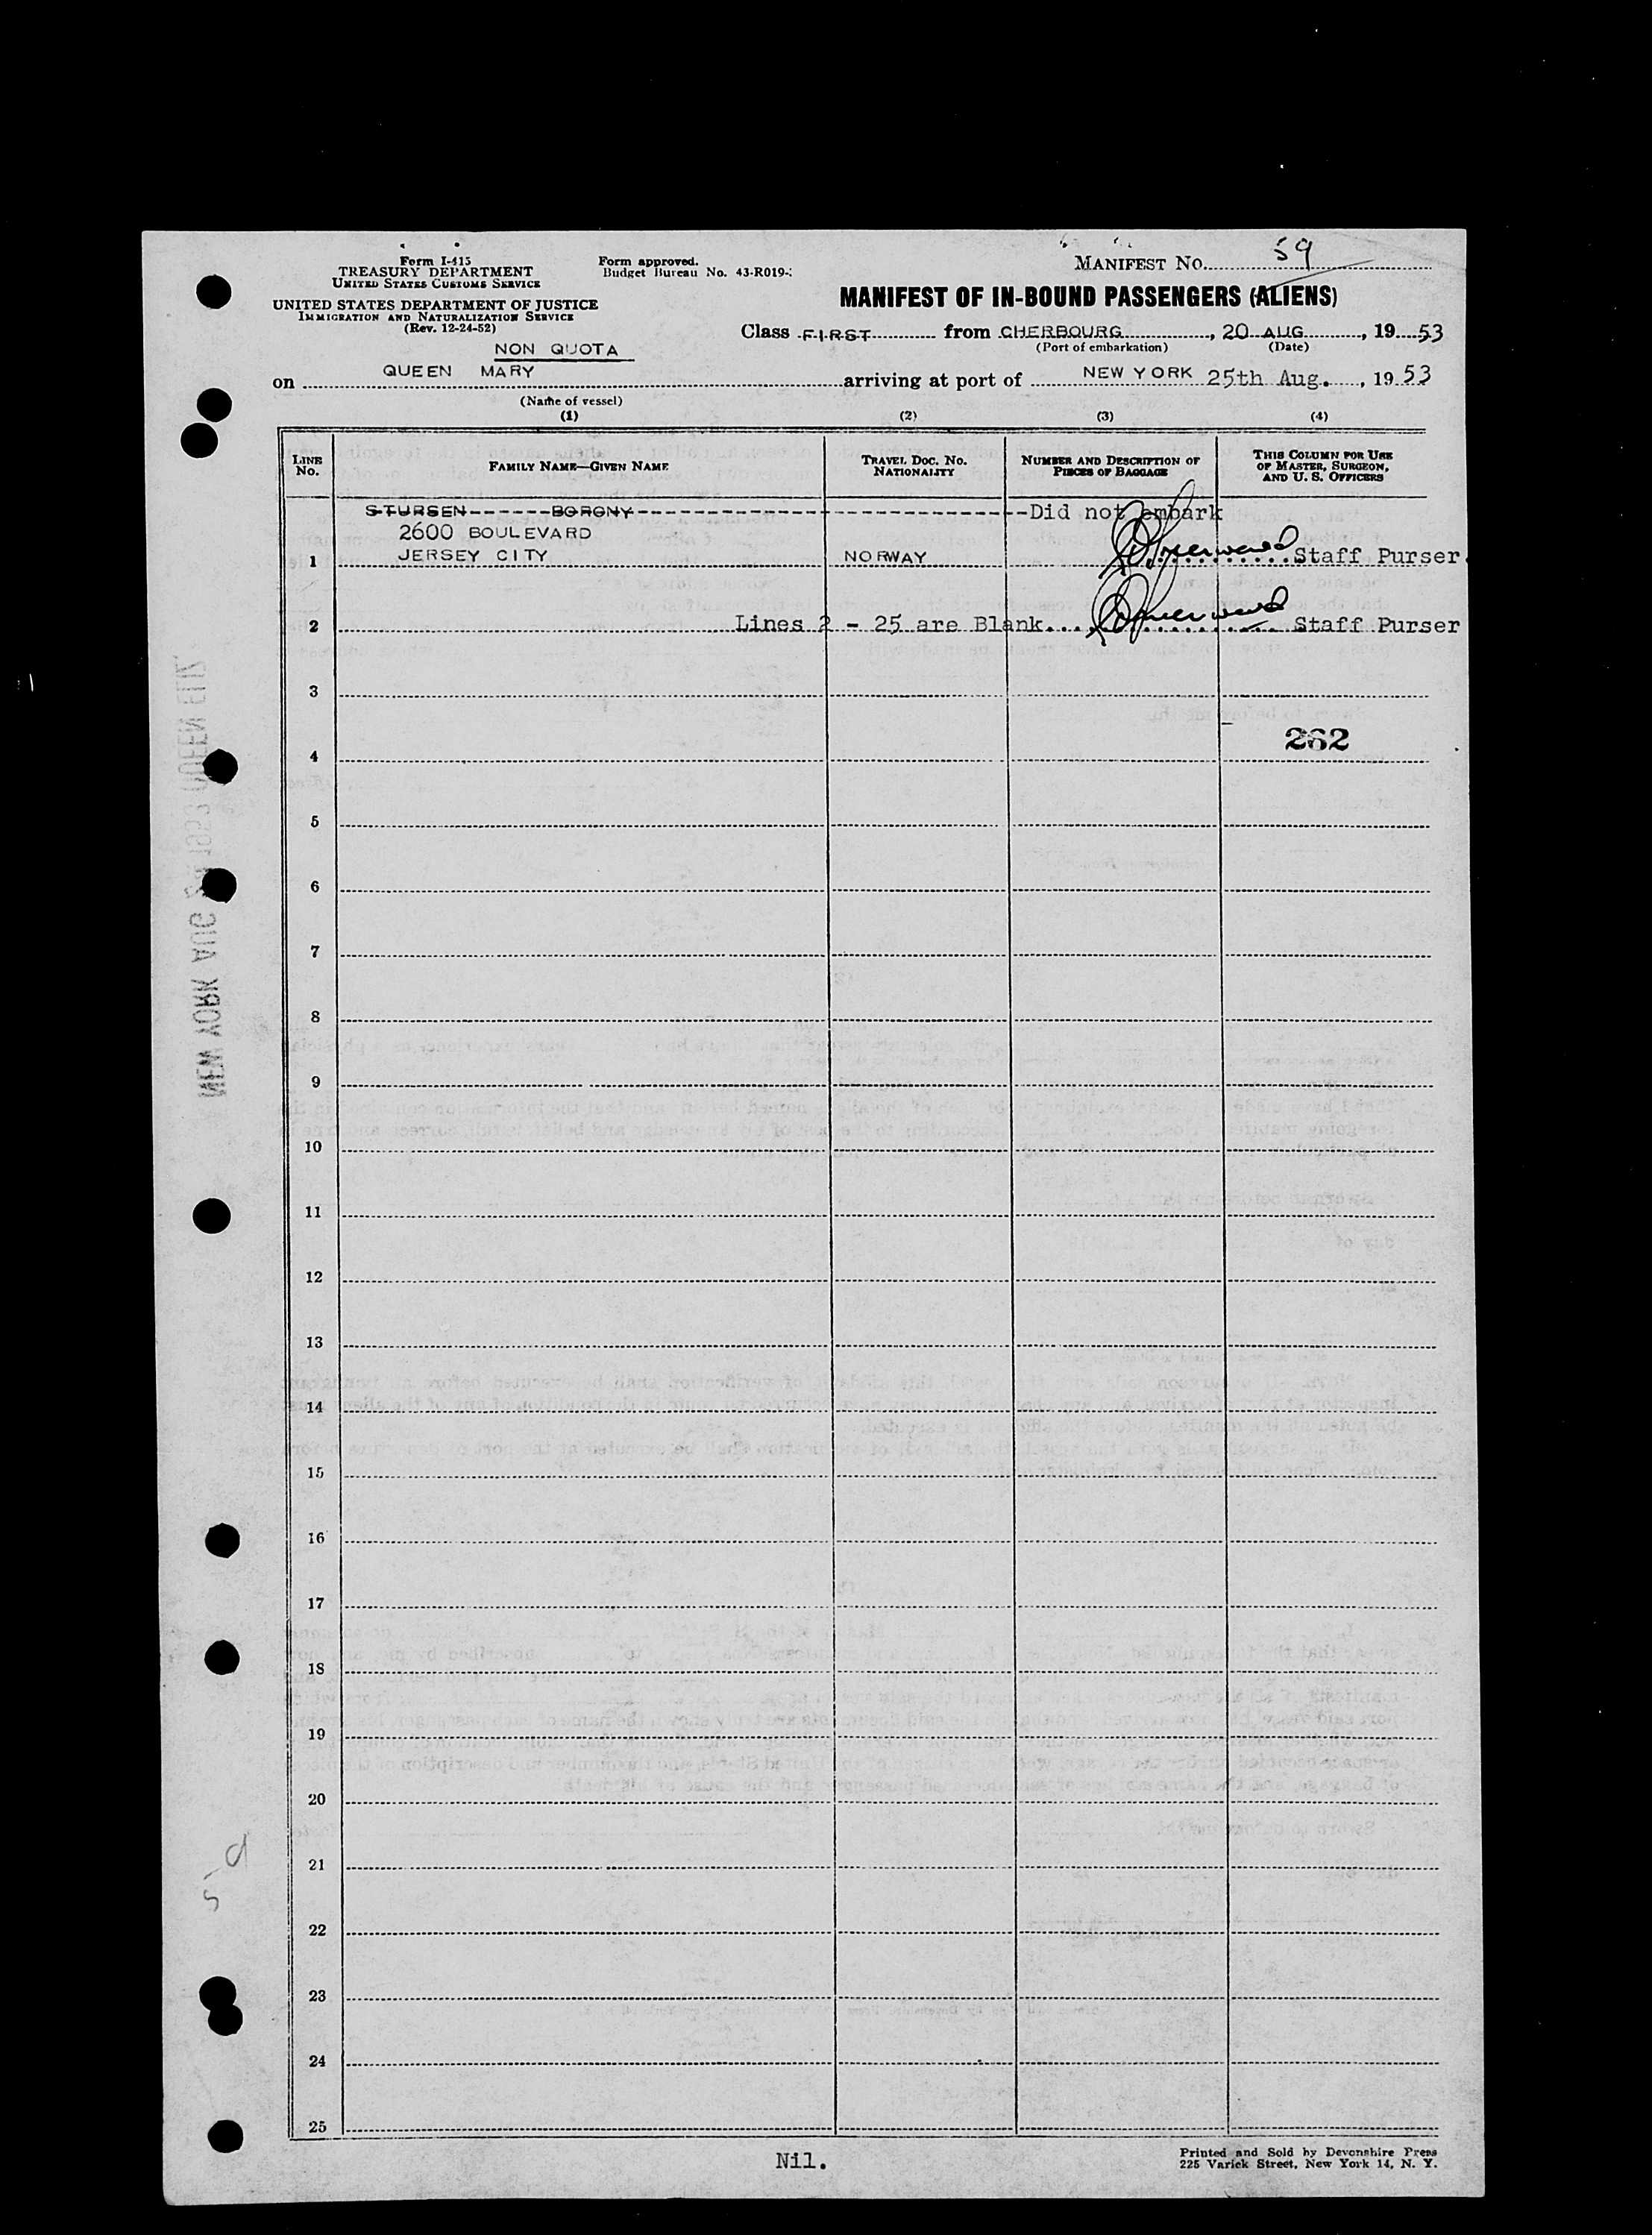 Form I-415
TREASURY DEPARTMENT
UNITED STATES CUSTOMS SERVICE
UNITED STATES DEPARTMENT OF JUSTICE
IMMIGRATION AND NATURALIZATION SERVICE
(Rev. 12-24-52)
Form approved.
Budget Bureau No. 43-R019-
MANIFEST NO. 59
MANIFEST OF IN-BOUND PASSENGERS (ALIENS)
Class FIRST from CHERBOURG, 20 AUG, 19 53
(Port of embarkation) (Date)
NON QUOTA
on QUEEN MARY arriving at port of NEW YORK 25th Aug., 19 53
(Name of vessel)
(1) (2) (3) (4)
LINE No.
FAMILY NAME—GIVEN NAME
TRAVEL DOC. NO. NATIONALITY
NUMBER AND DESCRIPTION OF PIECES OF BAGGAGE
THIS COLUMN FOR USE OF MASTER, SURGEON, AND U. S. OFFICERS
STURSEN------BORGNY------Did not embark
2600 BOULEVARD
1 JERSEY CITY NORWAY Staff Purser.
2 Lines 2 - 25 are Blank.... Staff Purser
3
262
4
5
6
7
8
9
10
11
12
13
14
15
16
17
18
19
20
21
22
23
24
25
Nil.
Printed and Sold by Devonshire Press
225 Varick Street, New York 14, N. Y.
NEW YORK AUG 1953 QUEEN ELIZ
5-9